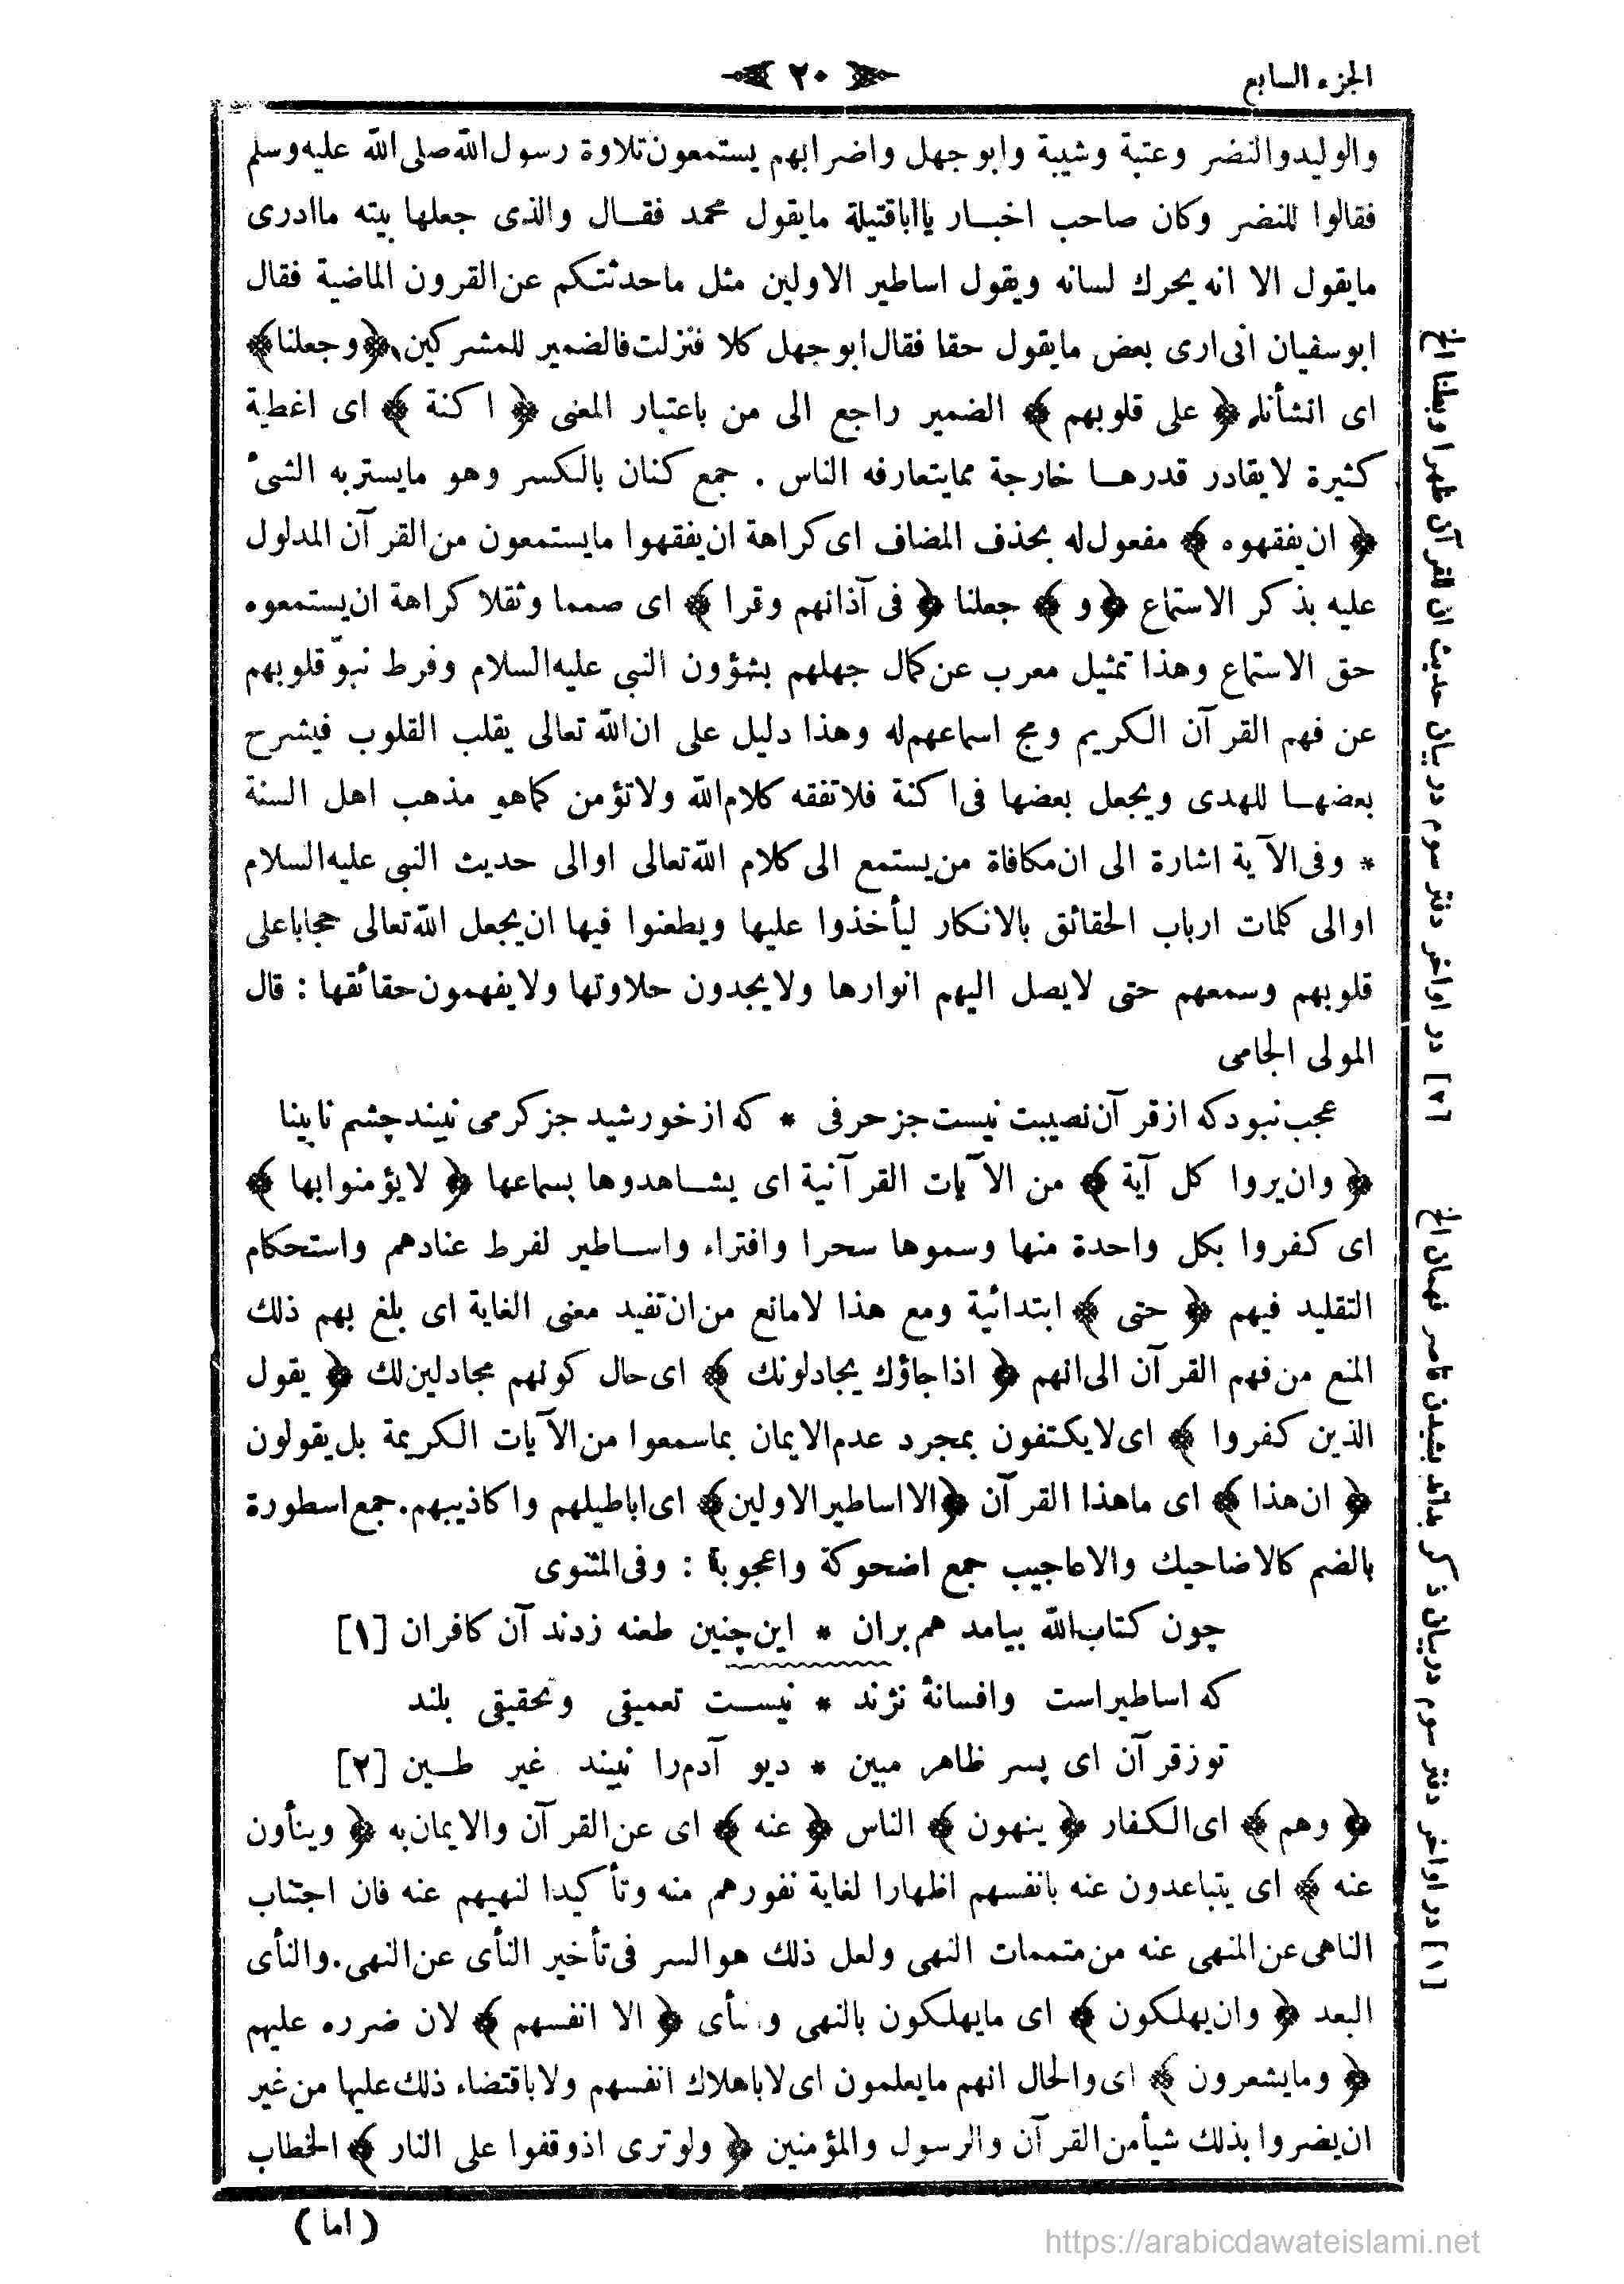 الجزء السابع
﴿ ٢٠ ﴾
والوليد والنضر وعتبة وشيبة وابو جهل واضرابهم يستمعون تلاوة رسول الله صلى الله عليه وسلم
فقالوا للنضر وكان صاحب اخبار يا ابا قتيلة ما يقول محمد فقال والذى جعلها بيته ما ادرى
ما يقول الا انه يحرك لسانه ويقول اساطير الاولين مثل ما حدثتكم عن القرون الماضية فقال
ابو سفيان انى ارى بعض ما يقول حقا فقال ابو جهل كلا فنزلت فالضمير للمشركين ﴿وجعلنا﴾
اى انشأنا ﴿ على قلوبهم ﴾ الضمير راجع الى من باعتبار المعنى ﴿ اكنة ﴾ اى اغطية
كثيرة لا يقادر قدرها خارجة مما يتعارفه الناس . جمع كنان بالكسر وهو ما يستر به الشئ
﴿ ان يفقهوه ﴾ مفعول له بحذف المضاف اى كراهة ان يفقهوا ما يستمعون من القرآن المدلول
عليه بذكر الاستماع ﴿ و ﴾ جعلنا ﴿ فى آذانهم وقرا ﴾ اى صمما وثقلا كراهة ان يستمعوه
حق الاستماع وهذا تمثيل معرب عن كمال جهلهم بشؤون النبى عليه السلام وفرط نبوّ قلوبهم
عن فهم القرآن الكريم ومج اسماعهم له وهذا دليل على ان الله تعالى يقلب القلوب فيشرح
بعضها للهدى ويجعل بعضها فى اكنة فلا تفقه كلام الله ولا تؤمن كما هو مذهب اهل السنة
* وفى الآية اشارة الى ان مكافاة من يستمع الى كلام الله تعالى او الى حديث النبى عليه السلام
او الى كلمات ارباب الحقائق بالانكار ليأخذوا عليها ويطعنوا فيها ان يجعل الله تعالى حجابا على
قلوبهم وسمعهم حتى لا يصل اليهم انوارها ولا يجدون حلاوتها ولا يفهمون حقائقها : قال
المولى الجامى
عجب نبود كه از قرآن نصيبت نيست جز حرفى * كه از خورشيد جز كرمى نبيند چشم نابينا
﴿ وان يروا كل آية ﴾ من الآيات القرآنية اى يشاهدوها بسماعها ﴿ لا يؤمنوا بها ﴾
اى كفروا بكل واحدة منها وسموها سحرا وافتراء واساطير لفرط عنادهم واستحكام
التقليد فيهم ﴿ حتى ﴾ ابتدائية ومع هذا لا مانع من ان تفيد معنى الغاية اى بلغ بهم ذلك
المنع من فهم القرآن الى انهم ﴿ اذا جاؤك يجادلونك ﴾ اى حال كونهم مجادلين لك ﴿ يقول
الذين كفروا ﴾ اى لا يكتفون بمجرد عدم الايمان بما سمعوا من الآيات الكريمة بل يقولون
﴿ ان هذا ﴾ اى ما هذا القرآن ﴿الا اساطير الاولين﴾ اى اباطيلهم واكاذيبهم . جمع اسطورة
بالضم كالاضاحيك والاعاجيب جمع اضحوكة واعجوبة : وفى المثنوى
چون كتاب الله بيامد هم بران * اين چنين طعنه زدند آن كافران [١]
كه اساطير است وافسانهٔ نژند * نيست تعميقى وتحقيقى بلند
تو ز قرآن اى پسر ظاهر مبين * ديو آدم را نبيند غير طين [٢]
﴿ وهم ﴾ اى الكفار ﴿ ينهون ﴾ الناس ﴿ عنه ﴾ اى عن القرآن والايمان به ﴿ وينأون
عنه ﴾ اى يتباعدون عنه بانفسهم اظهارا لغاية نفورهم منه وتأكيدا لنهيهم عنه فان اجتناب
الناهى عن المنهى عنه من متممات النهى ولعل ذلك هو السر فى تأخير النأى عن النهى . والنأى
البعد ﴿ وان يهلكون ﴾ اى ما يهلكون بالنهى والنأى ﴿ الا انفسهم ﴾ لان ضرره عليهم
﴿ وما يشعرون ﴾ اى والحال انهم ما يعلمون اى لا باهلاك انفسهم ولا باقتضاء ذلك عليها من غير
ان يضروا بذلك شيأ من القرآن والرسول والمؤمنين ﴿ ولو ترى اذ وقفوا على النار ﴾ الخطاب
( اما )
[١] در اواخر دفتر سوم در بيان ذكر بد انديشيدن قاصر فهمان الخ
[٢] در اواخر دفتر سوم در بيان حديث ان للقرآن ظهرا وبطنا الخ
https://arabicdawateislami.net